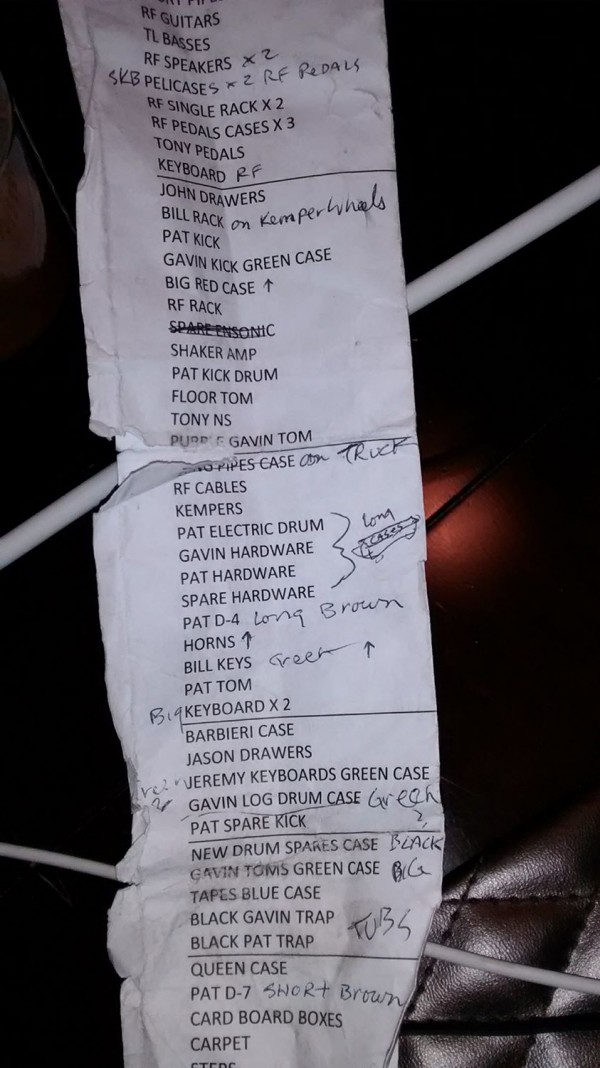 RF GUITARS
TL BASSES
RF SPEAKERS x 2
SKB PELICASES x 2 RF PEDALS
RF SINGLE RACK X 2
RF PEDALS CASES X 3
TONY PEDALS
KEYBOARD RF
JOHN DRAWERS
BILL RACK on Kemper Wheels
PAT KICK
GAVIN KICK GREEN CASE
BIG RED CASE ↑
RF RACK
SPARE ENSONIC
SHAKER AMP
PAT KICK DRUM
FLOOR TOM
TONY NS
PURPLE GAVIN TOM
PIPES CASE on TRUCK
RF CABLES
KEMPERS
PAT ELECTRIC DRUM
GAVIN HARDWARE long CASES
PAT HARDWARE
SPARE HARDWARE
PAT D-4 Long Brown
HORNS ↑
BILL KEYS Green ↑
PAT TOM
Big KEYBOARD X 2
BARBIERI CASE
JASON DRAWERS
JEREMY KEYBOARDS GREEN CASE
GAVIN LOG DRUM CASE Green
PAT SPARE KICK ?
NEW DRUM SPARES CASE BLACK
GAVIN TOMS GREEN CASE BIG
TAPES BLUE CASE
BLACK GAVIN TRAP TUBS
BLACK PAT TRAP
QUEEN CASE
PAT D-7 SHORT Brown
CARD BOARD BOXES
CARPET